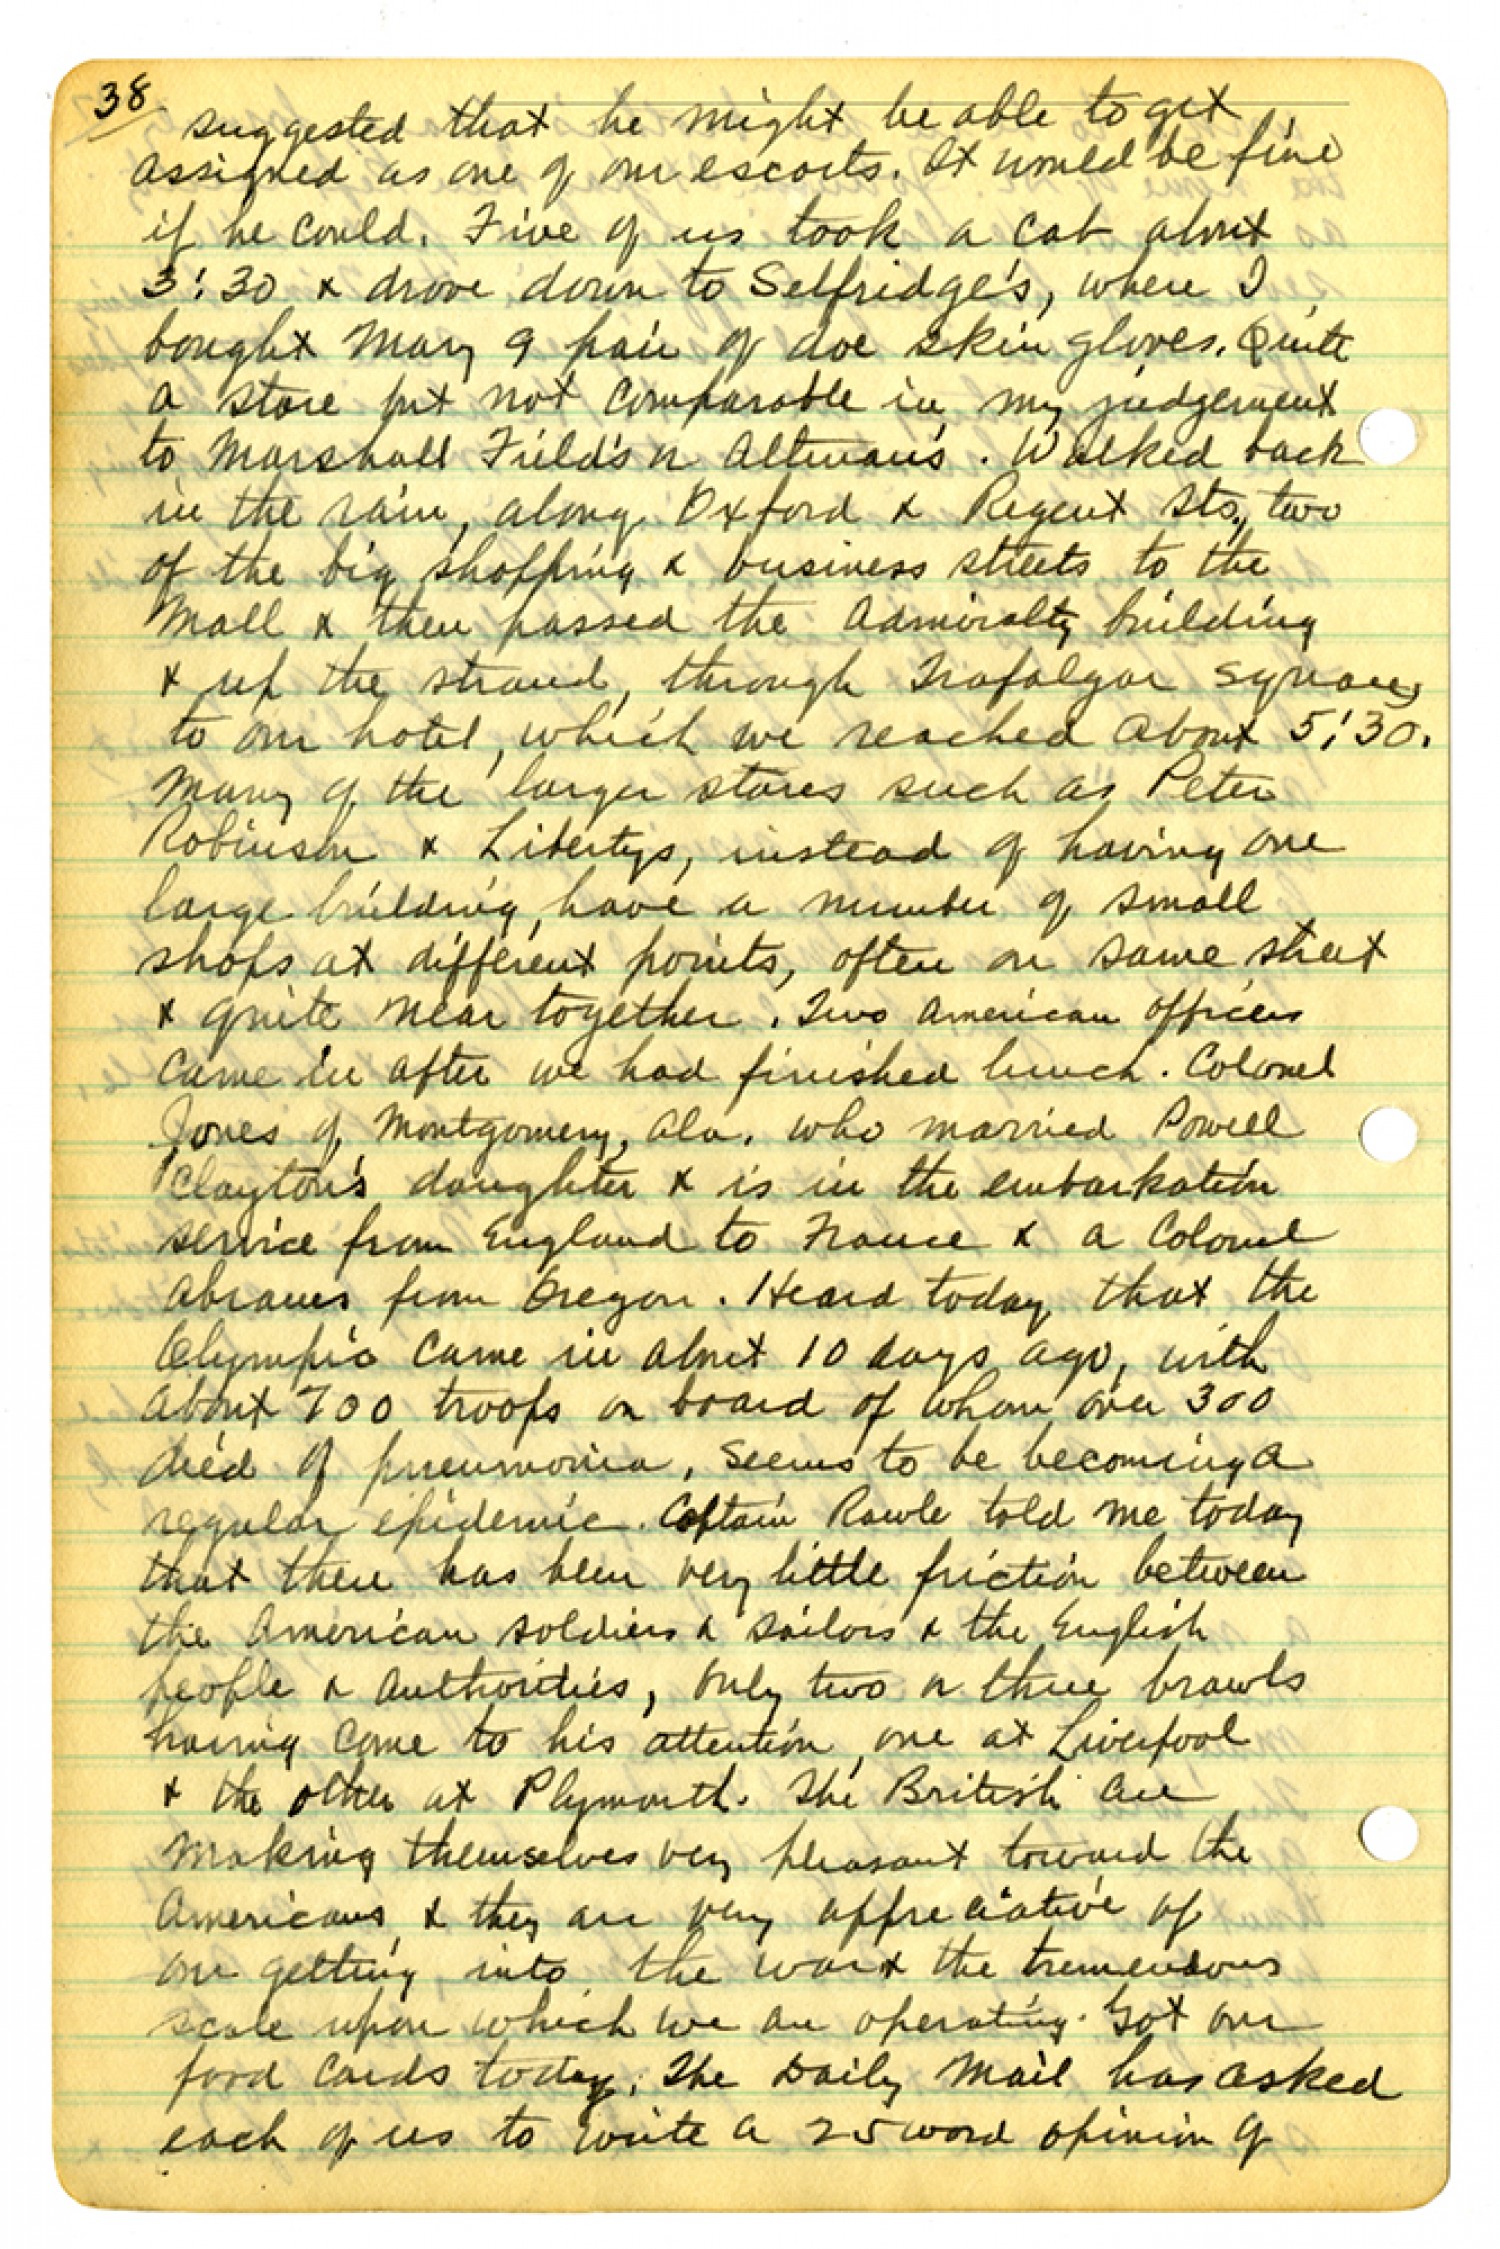 38
suggested that he might be able to get
assigned as one of our escorts. It would be fine
if he could. Five of us took a cab about
3:30 & drove down to Selfridge's, where I
bought Mary a pair of doe skin gloves. Quite
a store but not comparable in my judgement
to Marshall Field's or Altman's. Walked back
in the rain, along Oxford & Regent Sts., two
of the big shopping & business streets to the
Mall & then passed the Admiralty building
& up the strand, through Trafalgar Square,
to our hotel, which we reached about 5:30.
Many of the larger stores such as Peter
Robinson & Libertys, instead of having one
large building, have a number of small
shops at different points, often on same street
& quite near together. Two American officers
came in after we had finished lunch. Colonel
Jones of Montgomery, Ala. who married Powell
Clayton's daughter & is in the embarkation
service from England to France & a Colonel
Abrams from Oregon. Heard today that the
Olympic came in about 10 days ago, with
about 700 troops on board of whom over 300
died of pneumonia, seems to be becoming a
regular epidemic. Captain Rawle told me today
that there has been very little friction between
the American soldiers & sailors & the English
people & authorities, only two or three brawls
having come to his attention, one at Liverpool
& the other at Plymouth. The British are
making themselves very pleasant toward the
Americans & they are very appreciative of
our getting into the war & the tremendous
scale upon which we are operating. Got our
food cards today. The Daily Mail has asked
each of us to write a 25 word opinion of